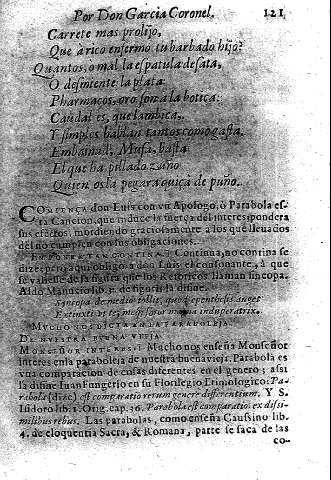 Por Don Garcia Coronel. 121
Carrete mas prolijo,
Que a rico enfermo tu barbado hijo?
Quantos, o mal la espatula desata,
O desmiente la plata
Pharmacos, oro son a la botica:
Caudal es, que lambica,
Y simples hablan tantos como gasta.
Embainad, Musa, basta
El que ha pillado zuño
Quien os la pegara quiçà de puño.
COMIENÇA don Luis con vn Apologo, ò Parabola es-
ta Cancion, que induce la fuerça del interes; pondera
sus efectos, mordiendo graciosamente a los que lleuados
del no cumplen con sus obligaciones.
Continua, no contina se
dize; pero aqui obligò a don Luis el consonante, à que
se valiesse de la figura que los Retoricos llaman sincopa.
Aldo Manucio lib. de figuris la difine.
Syncopa de medio tollit, quod epenthesis auget
MVCHO NOS DICTA EN LA PARABOLEJA
DE NVESTRA BVENA VIEJA
MONSEÑOR INTERES. Mucho nos enseña Monseñor
Interes en la paraboleja de nuestra buena vieja. Parabola es
vna comparacion de cosas diferentes en el genero; assi
la difine Iuan Fungerio en su Florilegio Etimologico: Pa-
rabola (dize) est comparatio rerum genere differentium. Y S.
Isidoro lib. 1. Orig. cap. 36. Parabola est comparatio ex dissi-
milibus rebus. Las parabolas, como enseña Caussino lib.
4. de eloquentia Sacra, & Romana, parte se saca de las
co-